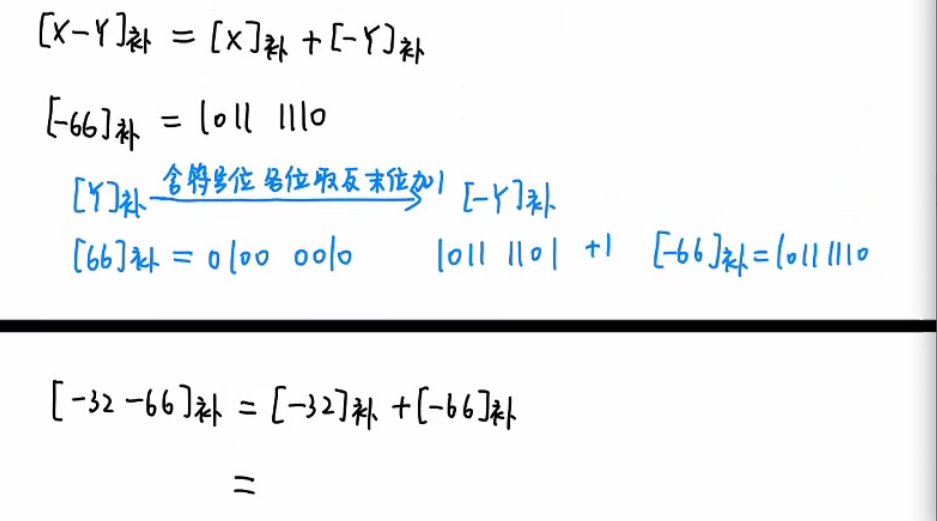 [X-Y]补 = [X]补 + [-Y]补
[-66]补 = 1011 1110
[Y]补 含符号位 各位取反 末位加1 [-Y]补
[66]补 = 0100 0010 1011 1101 +1 [-66]补 = 1011 1110
[-32-66]补 = [-32]补 + [-66]补
=